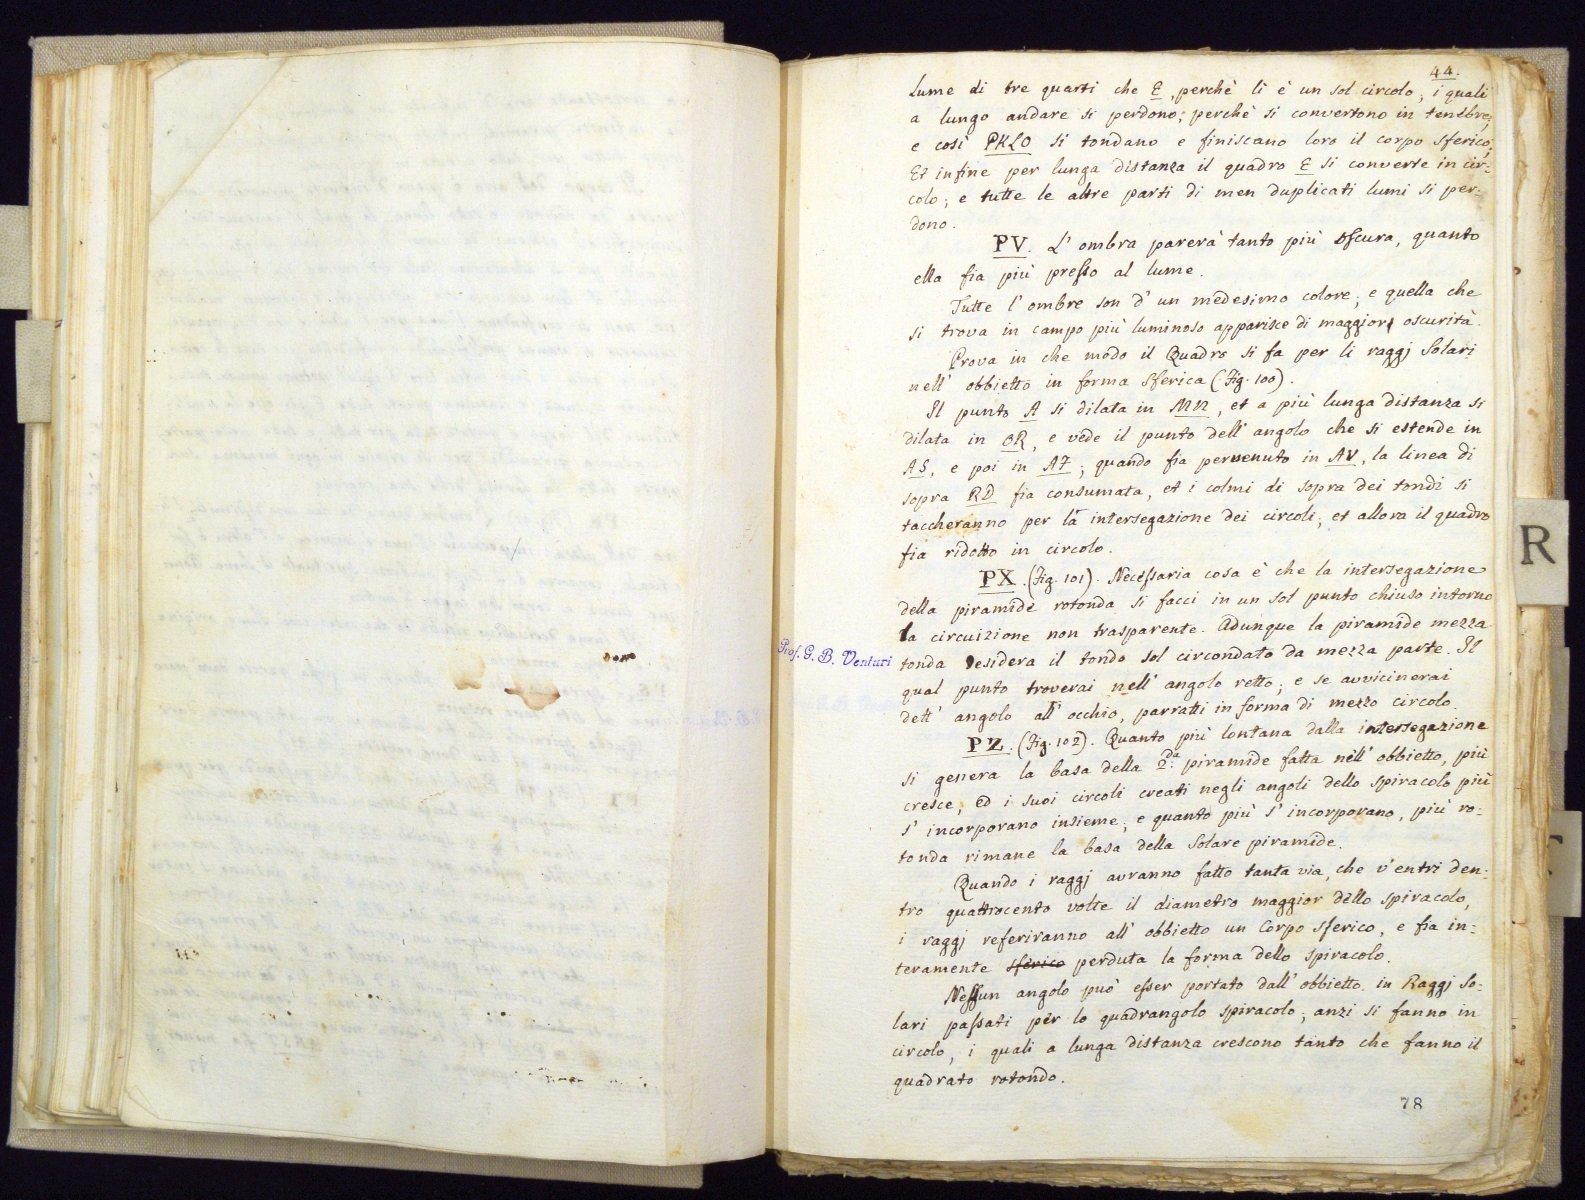 44.
Lume di tre quarti che E, perchè li è un sol circolo; i quali
a lungo andare si perdono; perchè si convertono in tenebre;
e così PKLO si tondano e finiscano loro il corpo sferico;
Et infine per lunga distanza il quadro E si converte in cir:
colo; e tutte le altre parti di men duplicati lumi si per:
dono.
PV. L' ombra parerà tanto più oscura, quanto
ella fia più presso al lume.
Tutte l' ombre son d' un medesimo colore; e quella che
si trova in campo più luminoso apparisce di maggior oscurità.
Prova in che modo il Quadro si fa per li raggj Solari
nell' obbietto in forma Sferica (Fig. 100).
Il punto A si dilata in MN, et a più lunga distanza si
dilata in OR, e vede il punto dell' angolo che si estende in
AS, e poi in AT; quando fia pervenuto in AV, la linea di
sopra RD fia consumata, et i colmi di sopra dei tondi si
taccheranno per la intersegazione dei circoli; et allora il quadro
fia ridotto in circolo.
PX. (Fig. 101). Necessaria cosa è che la intersegazione
della piramide rotonda si facci in un sol punto chiuso intorno
la circuizione non trasparente. Adunque la piramide mezza
tonda desidera il tondo sol circondato da mezza parte. Il
qual punto troverai nell' angolo retto; e se avvicinerai
dett' angolo all' occhio, parratti in forma di mezzo circolo.
PZ. (Fig. 102). Quanto più lontana dalla intersegazione
si genera la basa della 2.da piramide fatta nell' obbietto, più
cresce, ed i suoi circoli creati negli angoli dello spiracolo più
s' incorporano insieme; e quanto più s' incorporano, più ro:
tonda rimane la basa della Solare piramide.
Quando i raggj avranno fatto tanta via, che v' entri den:
tro quattrocento volte il diametro maggior dello spiracolo,
i raggj referiranno all' obbietto un Corpo sferico, e fia in:
teramente sferico perduta la forma dello spiracolo.
Nessun angolo può esser portato dall' obbietto in Raggj So:
lari passati per lo quadrangolo spiracolo; anzi si fanno in
circolo, i quali a lunga distanza crescono tanto che fanno il
quadrato rotondo.
78
Prof. G. B. Venturi
R